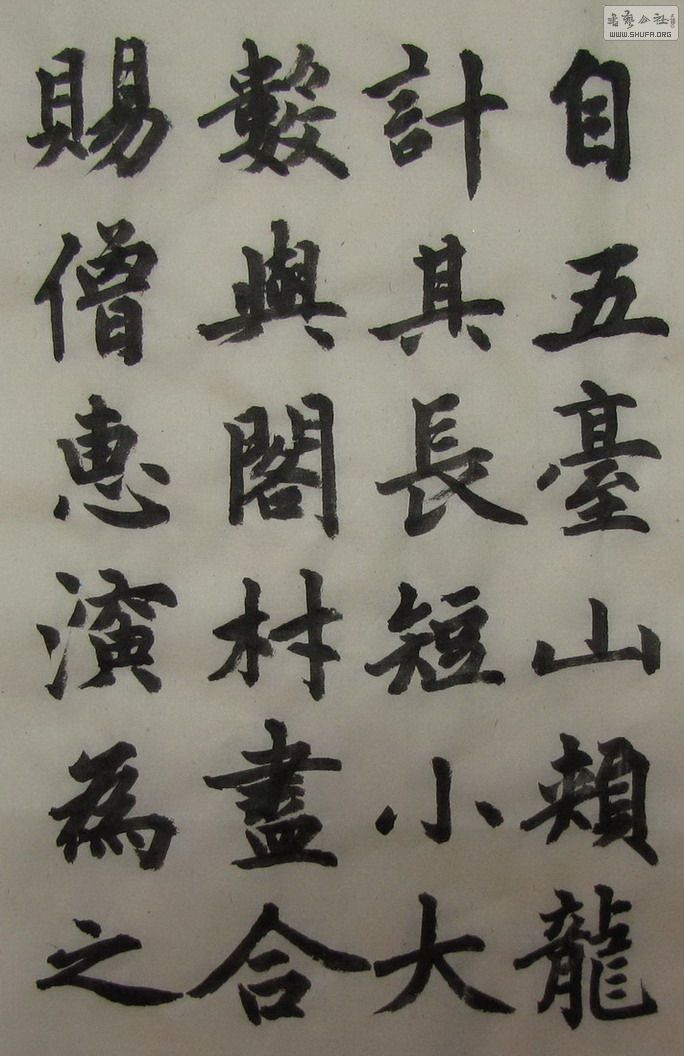 自五臺山頰龍
計其長短小大
數與閣材盡合
賜僧惠演為之
書藝公社
WWW.SHUFA.ORG